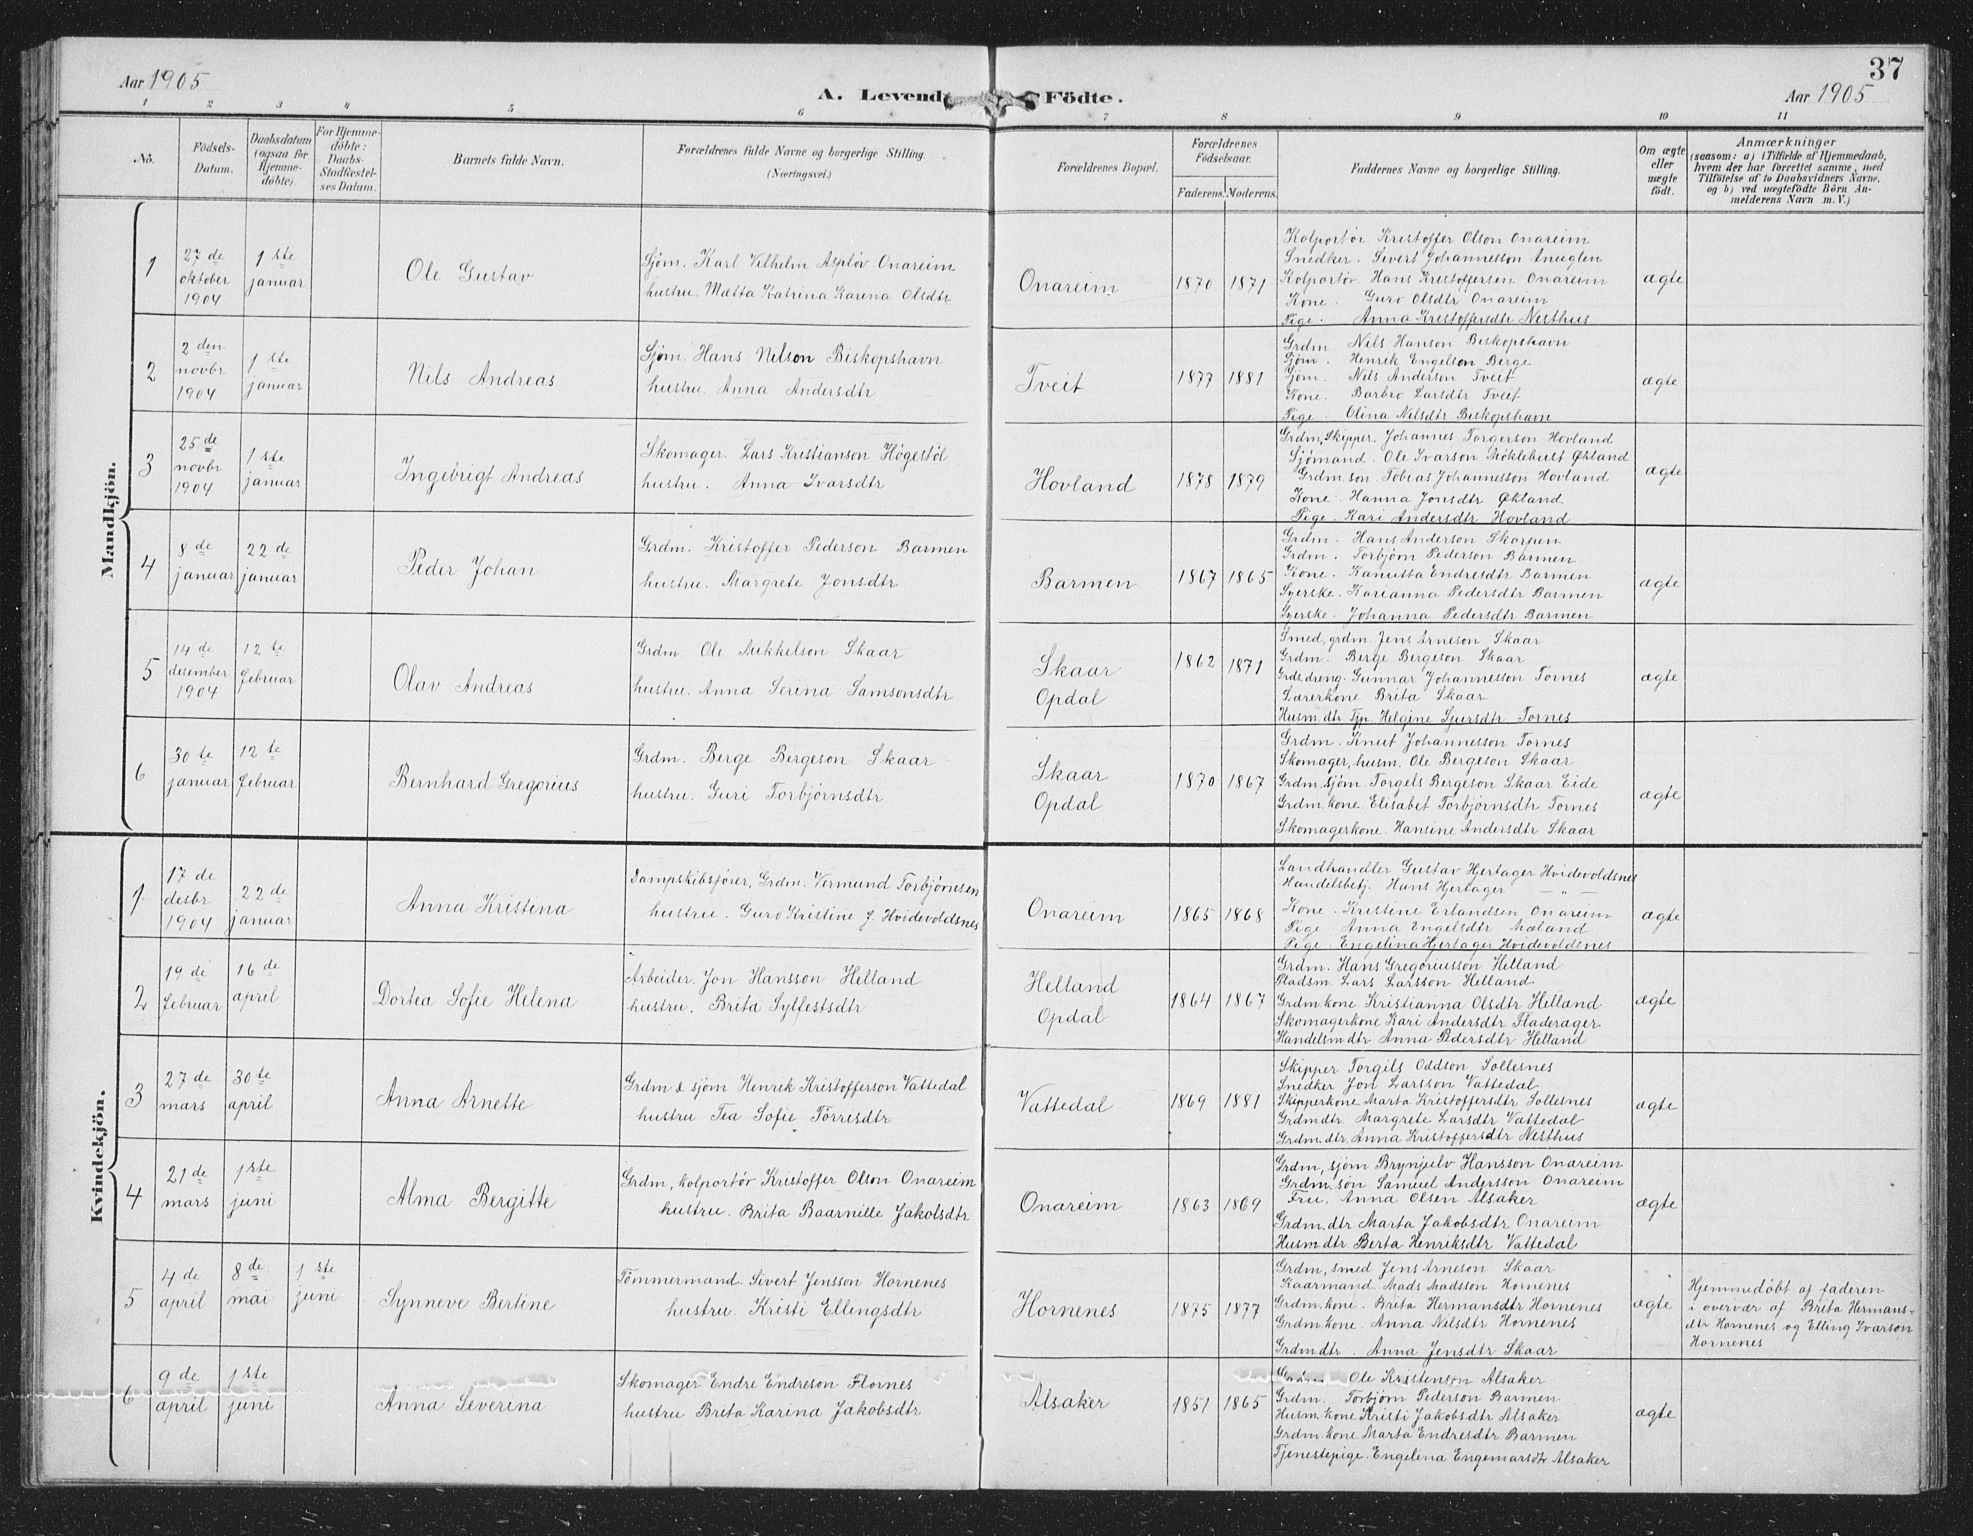 Aar 1905
A. Levende Födte.
37
Aar 1905
1 2 3 4 5 6 7 8 9 10 11
No.
Födsels-Datum.
Daabsdatum (ogsaa for Hjemmedöbte).
For Hjemmedöbte: Daabs-Stadfæstelses Datum.
Barnets fulde Navn.
Forældrenes fulde Navne og borgerlige Stilling. (Næringsvei.)
Forældrenes Bopæl.
Forældrenes Födselsaar.
Faderens. Moderens.
Faddernes Navne og borgerlige Stilling.
Om ægte eller uægte födt.
Anmærkninger
(saasom: a) i Tilfælde af Hjemmedaab, hvem der har forrettet samme, med Tilföielse af to Daabsvidners Navne, og b) ved uægtefödte Börn Anmelderens Navn m. V.)
Mandkjön.
1
27 de oktober 1904
1 ste januar
Ole Gustav
Sjøm. Karl Vilhelm Aspløv Onareim
hustru. Matta Katrina Karina Olsdtr
Onareim
1870 1871
Kolportør Kristoffer Olson Onareim
Snedker. Sivert Johannesson Anuglen
Kolportør. Hans Kristoffersen Onareim
Kone. Guro Olsdtr Onareim
Pige. Anna Kristoffersdtr Nesthus
ægte
2
2 den novbr 1904
1 ste januar
Nils Andreas
Sjøm. Hans Nilson Biskopshavn
hustru. Anna Andersdtr
Tveit
1877 1881
Grdm. Nils Hanson Biskopshavn
Sjøm. Henrik Engelson Berge
Sjøm. Nils Anderson Tveit
Kone. Barbro Larsdtr Tveit
Pige. Olina Nilsdtr Biskopshavn
ægte
3
25 de novbr 1904
1 ste januar
Ingebrigt Andreas
Skomager. Lars Kristianson Høgestøl
hustru. Anna Ivarsdtr
Hovland
1878 1879
Grdm, Skipper. Johannes Torgerson Hovland
Sjømand. Ole Ivarson Møklebust Økland
Grdm.søn. Tobias Johannesson Hovland
Kone. Hanna Jonsdtr Økland
Pige. Kari Andersdtr Hovland
ægte
4
8 de januar
22 de januar
Peder Johan
Grdm. Kristoffer Pederson Barmen
hustru. Margrete Jonsdtr
Barmen
1867 1865
Grdm. Hans Anderson Skorpen
Grdm. Torbjørn Pederson Barmen
Kone. Kanutta Endresdtr Barmen
Syerske. Karianna Pedersdtr Barmen
Syerske. Johanna Pedersdtr Barmen
ægte
5
14 de desember 1904
12 te februar
Olav Andreas
Grdm. Ole Mikkelson Skaar
hustru. Anna Serina Samsonsdtr
Skaar
Opdal
1862 1871
Smed, grdm. Jens Arneson Skaar
Grdm. Berge Bergeson Skaar
Grds.dreng. Gunnar Johannesson Tornes
Lærerkone Brita Skaar
Husm.dtr Tjp. Helgine Sjursdtr Tornes
ægte
6
30 te januar
12 te februar
Bernhard Gregorius
Grdm. Berge Bergeson Skaar
hustru. Guri Torbjørnsdtr
Skaar
Opdal
1870 1867
Grdm. Knut Johannesson Tornes
Skomager, husm. Ole Bergeson Skaar
Grdm.sjøm. Torgels Bergeson Skaar Eide
Grdm.kone. Elisabet Torbjørnsdtr Tornes
Skomagerkone. Hansine Andersdtr Skaar
ægte
Kvindekjön.
1
17 de desbr 1904
22 de januar
Anna Kristina
Dampskibsfører, Grdm. Vermund Torbjørnsen
hustru. Guro Kristine J. Hvidevoldsnes
Onareim
1865 1868
Landhandler Gustav Hjertager Hvidevoldsnes
Handelsbetj. Hans Hjertager — „ —
Kone. Kristine Erlandsen Onareim
Pige. Anna Engelsdtr Mæland
Pige. Engelina Hjertager Hvidevoldsnes
ægte
2
19 de februar
16 de april
Dortea Sofie Helena
Arbeider. Jon Hansson Helland
hustru. Brita Sylfestsdtr
Helland
Opdal
1864 1867
Grdm. Hans Gregoriusson Helland
Pladsm. Lars Larsson Helland
Grdm.kone Kristianna Olsdtr Helland
Skomagerkone Kari Andersdtr Fladerager
Handelsm.dtr Anna Pedersdtr Helland
ægte
3
27 de mars
30 te april
Anna Arnette
Grdm & sjøm Henrik Kristofferson Vattedal
hustru Tea Sofie Tørrisdtr
Vattedal
1869 1881
Skipper Torgils Oddson Sollesnes
Snedker Jon Larsson Vattedal
Skipperkone Marta Kristoffersdtr Sollesnes
Grdm.dtr Margrete Larsdtr Vattedal
Grdm.dtr. Anna Kristoffersdtr Nesthus
ægte
4
21 de mars
1 ste juni
Alma Bergitte
Grdm, kolportør Kristoffer Olson Onareim
hustru. Brita Baarnille Jakolsdtr
Onareim
1863 1869
Grdm, sjøm Brynjulv Hansson Onareim
Grdm.søn Samuel Andersson Onareim
Fru. Anna Olsen Alsaker
Grdm.dtr Marta Jakobsdtr Onareim
Husm.dtr Berta Henriksdtr Vattedal
ægte
5
4 de april
8 de mai
1 ste juni
Synneve Bertine
Tømmermand. Sivert Jensson Hornenes
hustru. Kristi Ellingsdtr
Hornenes
1875 1877
Grdm, smed Jens Arneson Skaar
Kaarmand Mads Madsson Hornenes
Grdm.kone. Brita Hermansdtr Hornenes
Grdm.kone. Anna Nilsdtr Hornenes
Grdm.dtr. Anna Jensdtr Skaar
ægte
Hjemmedøbt af faderen
i overvær af Brita Hermans-
dtr Hornenes og Elling Ivarson
Hornenes
6
9 de april
1 ste juni
Anna Severina
Skomager Endre Endreson Flornes
hustru Brita Karina Jakobsdtr
Alsaker
1851 1865
Grdm. Ole Kristenson Alsaker
Grdm. Torbjørn Pederson Barmen
Husm.kone Kristi Jakobsdtr Alsaker
Grdm.kone Marta Endresdtr Barmen
Tjenestepige. Engelina Engemarsdtr Alsaker
ægte